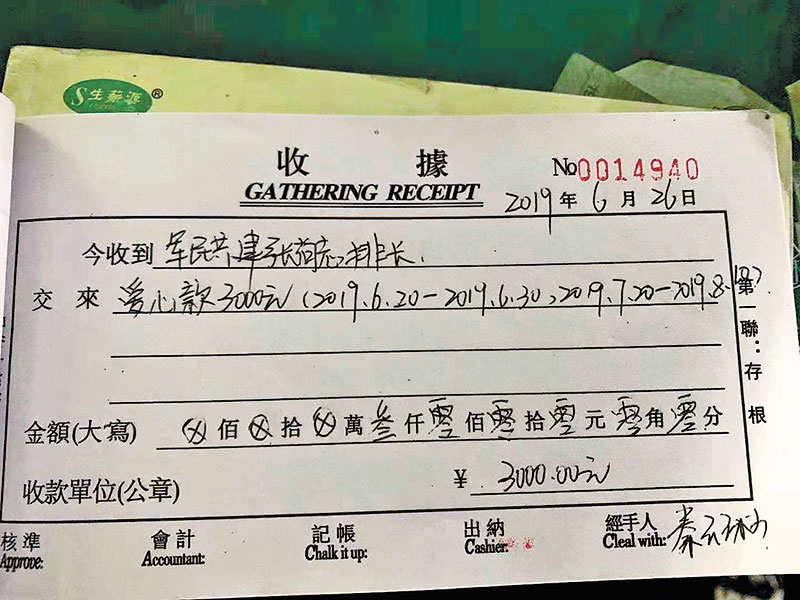 S生薪源®
收據 No0014940
GATHERING RECEIPT
2019年6月26日
今收到 军民共建张 排长.
交來 爱心款3000元(2019.6.20-2019.6.30、2019.7.20-2019.8.
第一聯:存根
金額(大寫) ⊗佰⊗拾⊗萬叁仟零佰零拾零元零角零分
收款單位(公章) ¥ 3000.00元
核準 會計 記帳 出納 經手人
Approve: Accountant: Chalk it up: Cashier: Cleal with: 秦